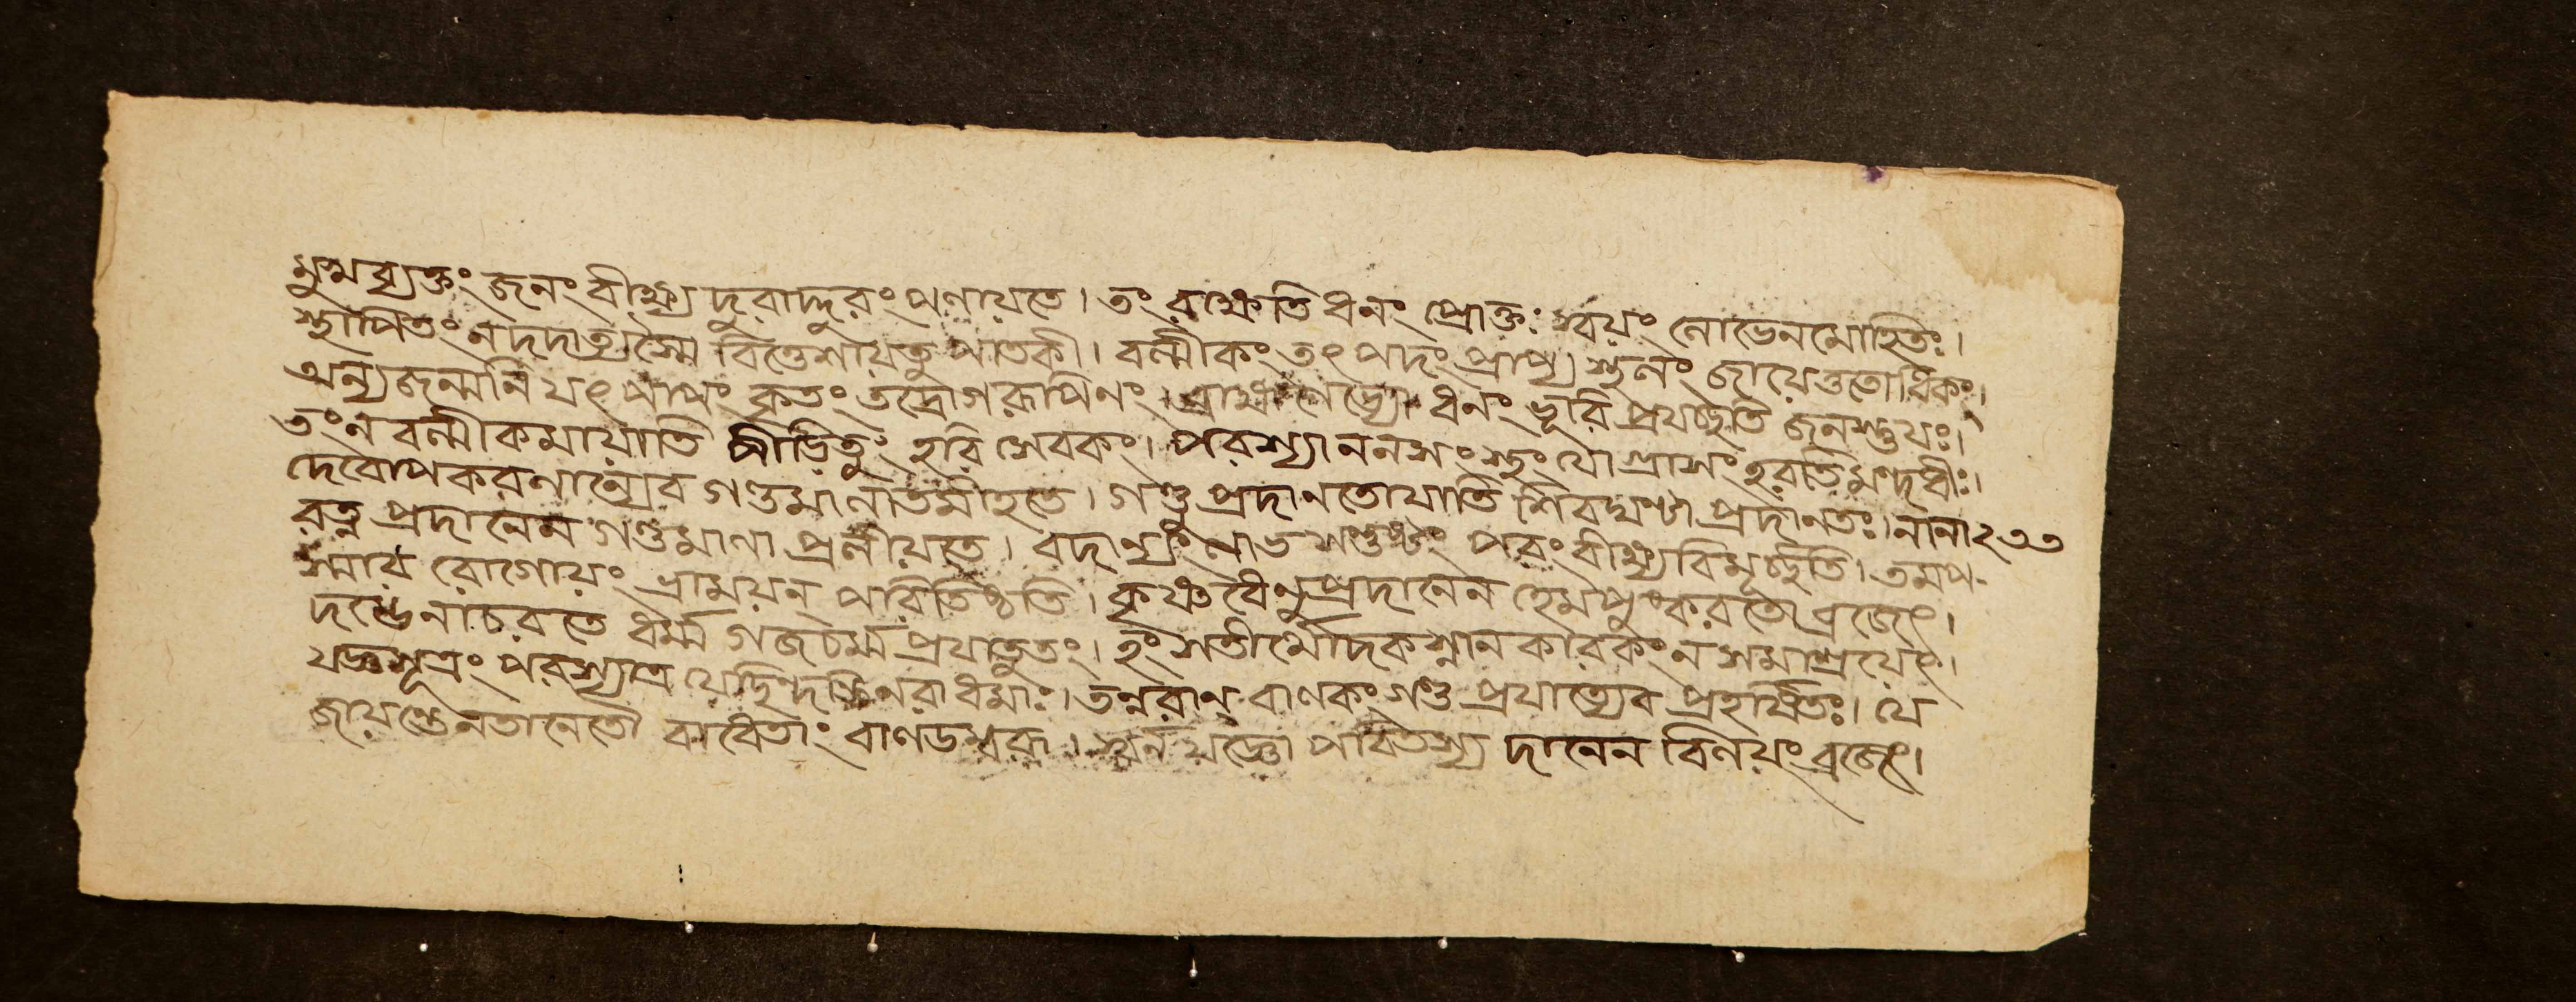 মুক্মব্যক্তং জনং বীক্ষ্য দুরাদ্দুরং পলায়তে। তং রক্ষেতি ধনং প্রোক্তঃ স্বয়ং লোভেনমোহিতঃ।
স্থাপিতং ন দদাত্যস্মৈ বিত্তেশায়তু পাতকী। বল্মীকং তৎ পদং প্রাপ্য স্থূলং জায়েত্ততোধিকং।
অন্যজন্মনি যৎ পাপং কৃতং তদ্রোগরূপিণং। ব্রাহ্মণেভ্যো ধনং ভূরি প্রযচ্ছতি জনস্তুযঃ।
তং ন বল্মীকমায়াতি পীড়িতুং হরি সেবকং। পরস্যাননসংস্থং যো গ্রাসং হরতি মন্দধীঃ।
দেবোপকরণান্যেব গণ্ডমালাতমীহতে। গণ্ডু প্রদানতোযাতি শিবঘণ্টা প্রদানতঃ। নানা ২৩৩
রত্ন প্রদানেন গণ্ডমালা প্রলীয়তে। বদান্যং লাভ সন্তুষ্টং পরং বীক্ষ্য বিমূর্চ্ছতি। তমপ-
স্মার রোগোয়ং ভ্রাময়ন্ পরিতিষ্ঠতি। কৃষ্ণধেনুপ্রদানেন হেমপুং করতো ব্রজেৎ।
দম্ভেনাচরতে ধর্ম্ম গজচর্ম্ম প্রযাতুতং। হংসতীর্থোদকস্নান কারকং ন সমাশ্রয়েৎ।
যজ্ঞসূত্রং পরস্যাত্র যেছিন্দন্তি নরাধমাঃ। তন্নরান্ বালকং গণ্ড প্রযাত্যেব প্রহর্ষিতঃ। যে
জায়ন্তেন তানেতৌ বাধিতাং বালডম্বরূ। স্বর্ণ যজ্ঞো পবিতস্য দানেন বিলয়ং ব্রজেৎ।